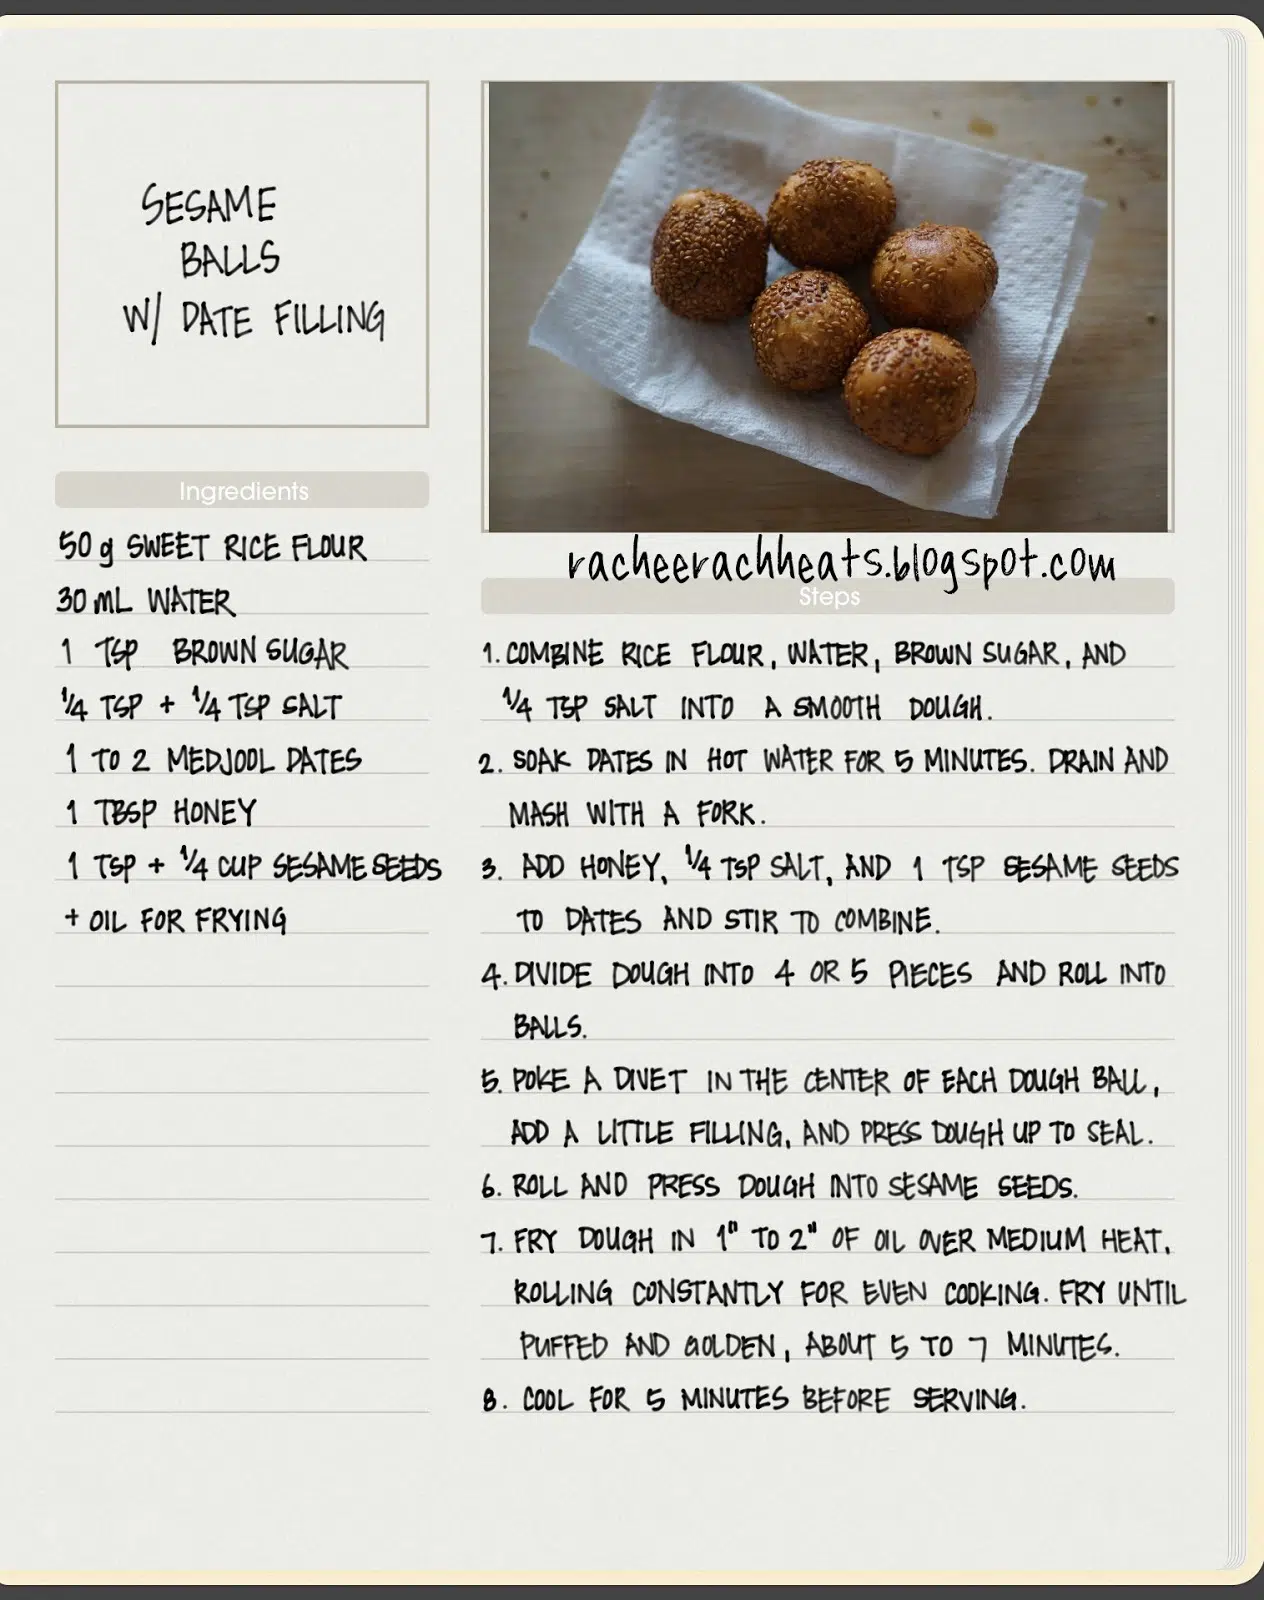 SESAME
BALLS
W/ DATE FILLING
Ingredients
50 g SWEET RICE FLOUR
30 mL WATER
1 TSP BROWN SUGAR
1/4 TSP + 1/4 TSP SALT
1 TO 2 MEDJOOL DATES
1 TBSP HONEY
1 TSP + 1/4 CUP SESAME SEEDS
+ OIL FOR FRYING
racheerachheats.blogspot.com
Steps
1. COMBINE RICE FLOUR, WATER, BROWN SUGAR, AND
1/4 TSP SALT INTO A SMOOTH DOUGH.
2. SOAK DATES IN HOT WATER FOR 5 MINUTES. DRAIN AND
MASH WITH A FORK.
3. ADD HONEY, 1/4 TSP SALT, AND 1 TSP SESAME SEEDS
TO DATES AND STIR TO COMBINE.
4. DIVIDE DOUGH INTO 4 OR 5 PIECES AND ROLL INTO
BALLS.
5. POKE A DIVET IN THE CENTER OF EACH DOUGH BALL,
ADD A LITTLE FILLING, AND PRESS DOUGH UP TO SEAL.
6. ROLL AND PRESS DOUGH INTO SESAME SEEDS.
7. FRY DOUGH IN 1" TO 2" OF OIL OVER MEDIUM HEAT,
ROLLING CONSTANTLY FOR EVEN COOKING. FRY UNTIL
PUFFED AND GOLDEN, ABOUT 5 TO 7 MINUTES.
8. COOL FOR 5 MINUTES BEFORE SERVING.